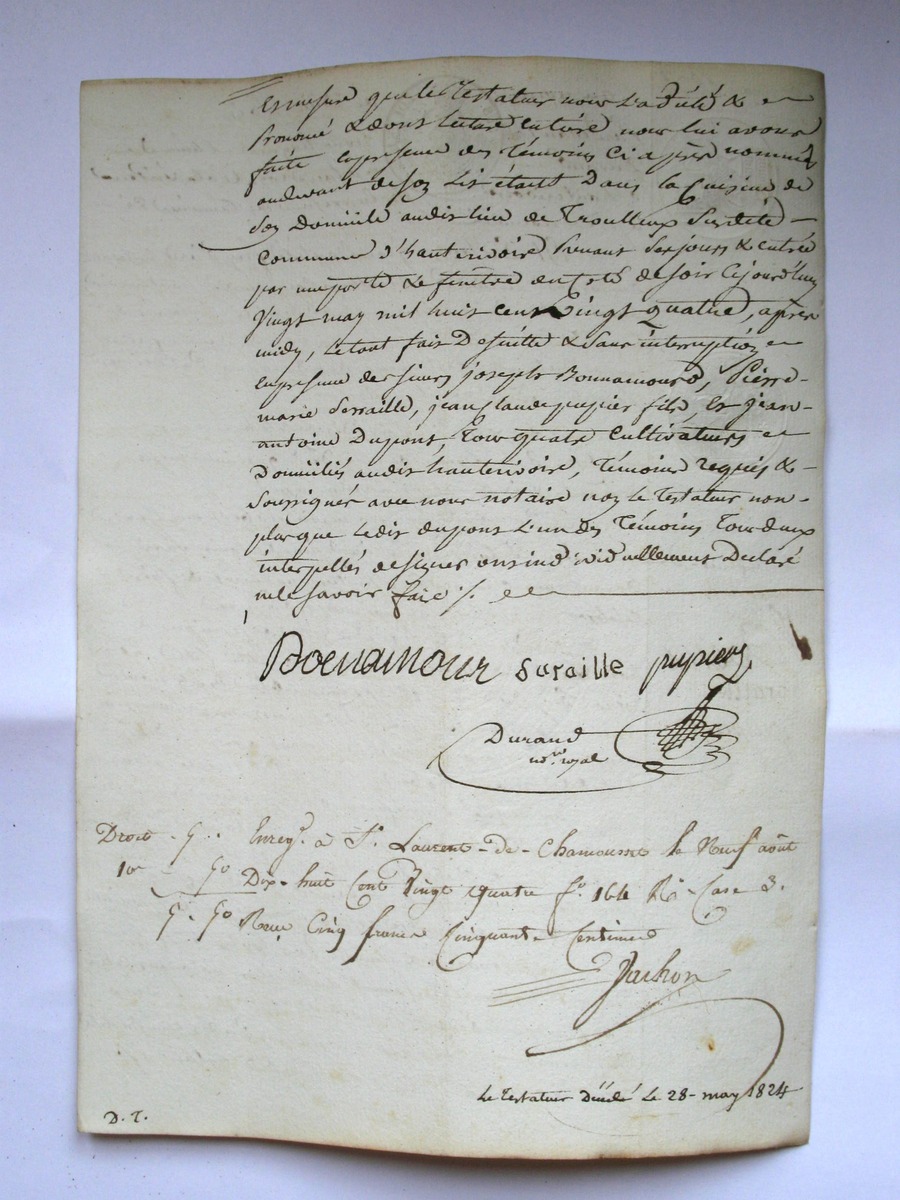 et mesure que le Testateur nous l'a dicté &
Prononcé & dont lecture entière nous lui avons
faite en presence des Témoins ci après nommés
audevant de son lit étant Dans la cuisine de
Son Domicile audit lieu de Troulleux Susdite
Commune d'hauterivoire Prenant Ses jours & entrée
par une porte & fenêtre du Coté de soir Cejourd'huy
Vingt may mil huit cent Vingt quatre, après
midy, le tout fait De suitte & Sans interruption
en presence des sieurs joseph Bonnamour, Pierre
marie Serraille, jean Claude pupier fils, Et jean
antoine Dupont, Tous quatre Cultivateurs
Domiciliés audit hauterivoire, Témoins requis &
Soussignés avec nous notaire non le Testateur non
plus que ledit dupont L'un des Témoins Tous deux
interpellés de signer ont individuellement Declaré
ne le savoir faire ./.
Boenamour saraille pupier
Durand
nore royal
Droit 5.. Enregt. à St. Laurent-de-Chamousset le Neuf août
10e 50 Dix-huit Cent Vingt quatre fo. 164 Ro Case 3.
5. 50 Reçu Cinq francs Cinquante Centimes
Jachon
Le Testateur Décédé Le 28 may 1824
D. T.